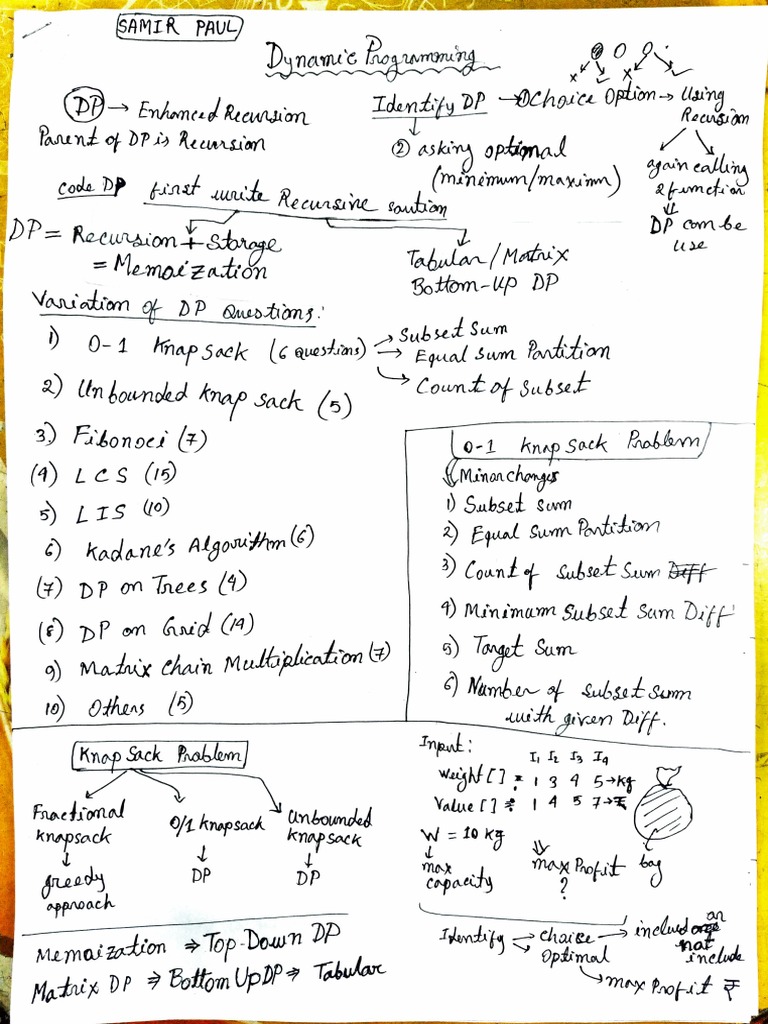 SAMIR PAUL
Dynamic Programming
DP → Enhanced Recursion
Parent of DP is Recursion
Identify DP → ① Choice Option → Using
Recursion
② asking optimal
(minimum/maximum)
again calling
2 function
⇓
DP can be
use
Code DP first write Recursive soution
DP = Recursion + Storage
= Memaization
Tabular / Matrix
Bottom-Up DP
Variation of DP Questions:
1) 0-1 Knap sack (6 questions) → Subset Sum
→ Equal Sum Partition
→ Count of Subset
2) Unbounded Knap sack (5)
3) Fibonoci (7)
(4) LCS (15)
5) LIS (10)
6) Kadane's Algorithm (6)
(7) DP on Trees (4)
(8) DP on Grid (14)
9) Matrix Chain Multiplication (7)
10) Others (5)
0-1 Knap Sack Problem
Minor changes
1) Subset sum
2) Equal Sum Partition
3) Count of Subset Sum Diff
4) Minimum Subset Sum Diff
5) Target Sum
6) Number of subset sum
with given Diff.
Knap Sack Problem
Fractional
knapsack
↓
greedy
approach
0/1 knapsack
↓
DP
Unbounded
knapsack
↓
DP
Input:
I1 I2 I3 I4
Weight[] : 1 3 4 5 → kg
Value[] : 1 4 5 7 → ₹
W = 10 kg
↓
max
capacity
⇓
max Profit
?
bag
Identify → Choice → include or
not
include
→ Optimal
→ max Profit ₹
Memaization ⇒ Top-Down DP
Matrix DP ⇒ Bottom Up DP ⇒ Tabular